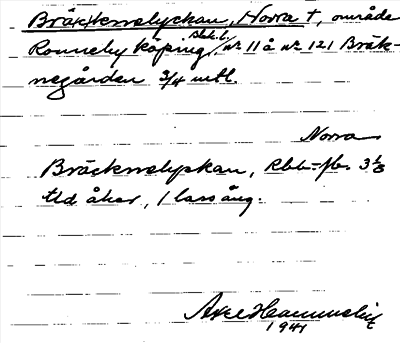 Bräkknelyckan, Norra †, område
Ronneby köping, nr 11 å nr 121 Bräk-
negården 3/4 mtl.
Norra
Bräcknelyckan, Rbb-fb. 3 1/8
tld åker, 1 lass äng.
Axel
1941